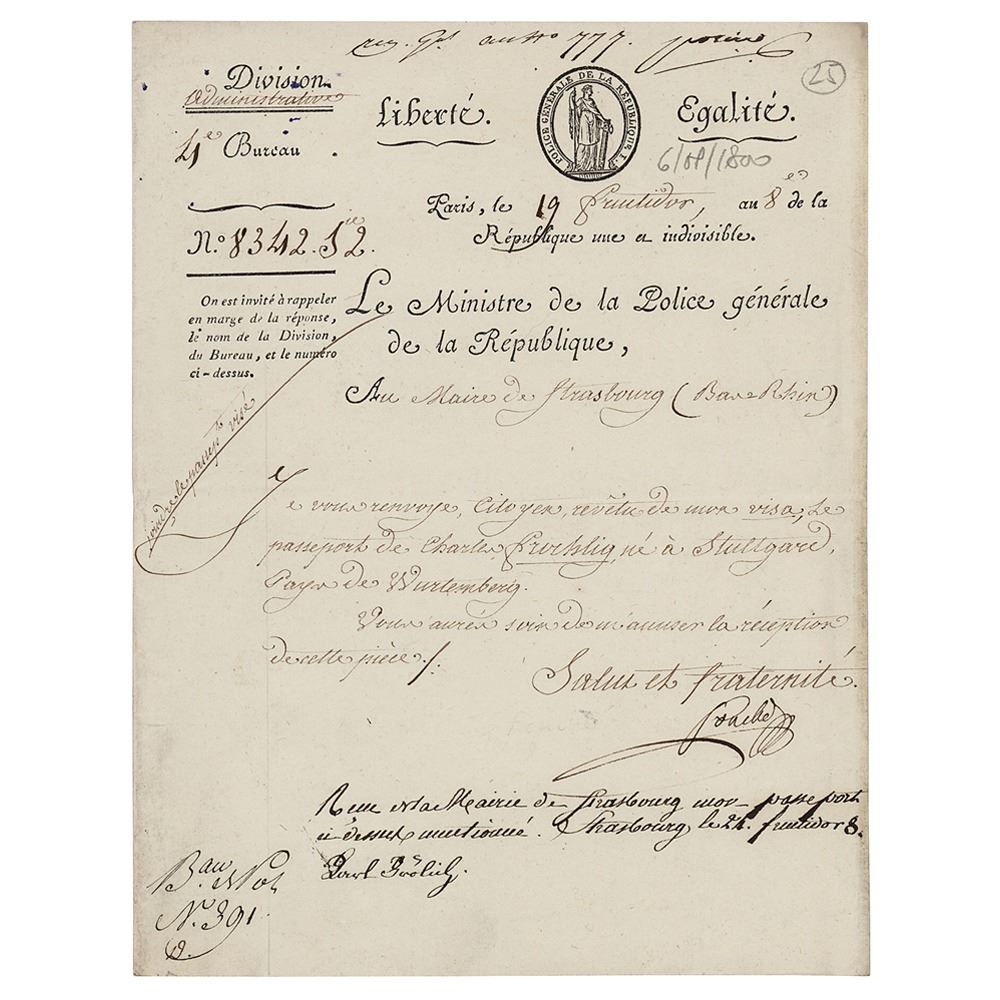 reg. Gal. au No 777.
25
Division
Administrative
4e Bureau.
Liberté.
POLICE GÉNÉRALE DE LA RÉPUBLIQUE F.
Egalité.
6/09/1800
Paris, le 19 fructidor, an 8e de la
République une et indivisible.
N.o 8342. S ie 2.
On est invité à rappeler
en marge de la réponse,
le nom de la Division,
du Bureau, et le numéro
ci-dessus.
Le Ministre de la Police générale
de la République,
Au Maire de Strasbourg (Bas-Rhin)
joindre le passept visé
Je vous renvoye, Citoyen, revêtu de mon visa, Le
passeport de Charles Froehlig, né à Stuttgard,
Pays de Wurtemberg.
Vous aurés soin de m'accuser la réception
de cette pièce ./.
Salut et fraternité.
Fouché
Reçu de la Mairie de Strasbourg mon passeport
ci-dessus mentionné. Strasbourg le 24. fructidor 8.
Karl Frölich.
Bau de Pol
N.o 391.